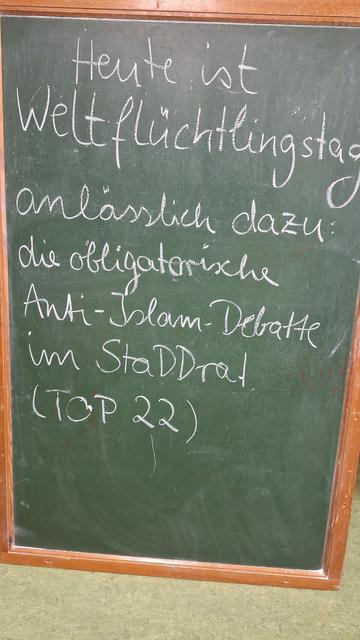 Heute ist
Weltflüchtlingstag
anlässlich dazu:
die obligatorische
Anti-Islam-Debatte
im StaDDrat
(TOP 22)